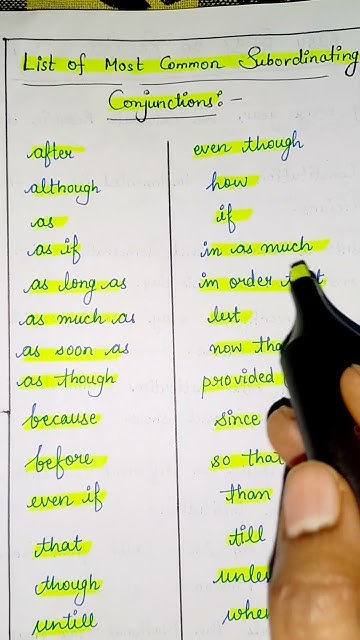 List of Most Common Subordinating
Conjunctions:-
after
although
as
as if
as long as
as much as
as soon as
as though
because
before
even if
that
though
untill
even though
how
if
in as much
in order
lest
now
provided
since
so that
than
till